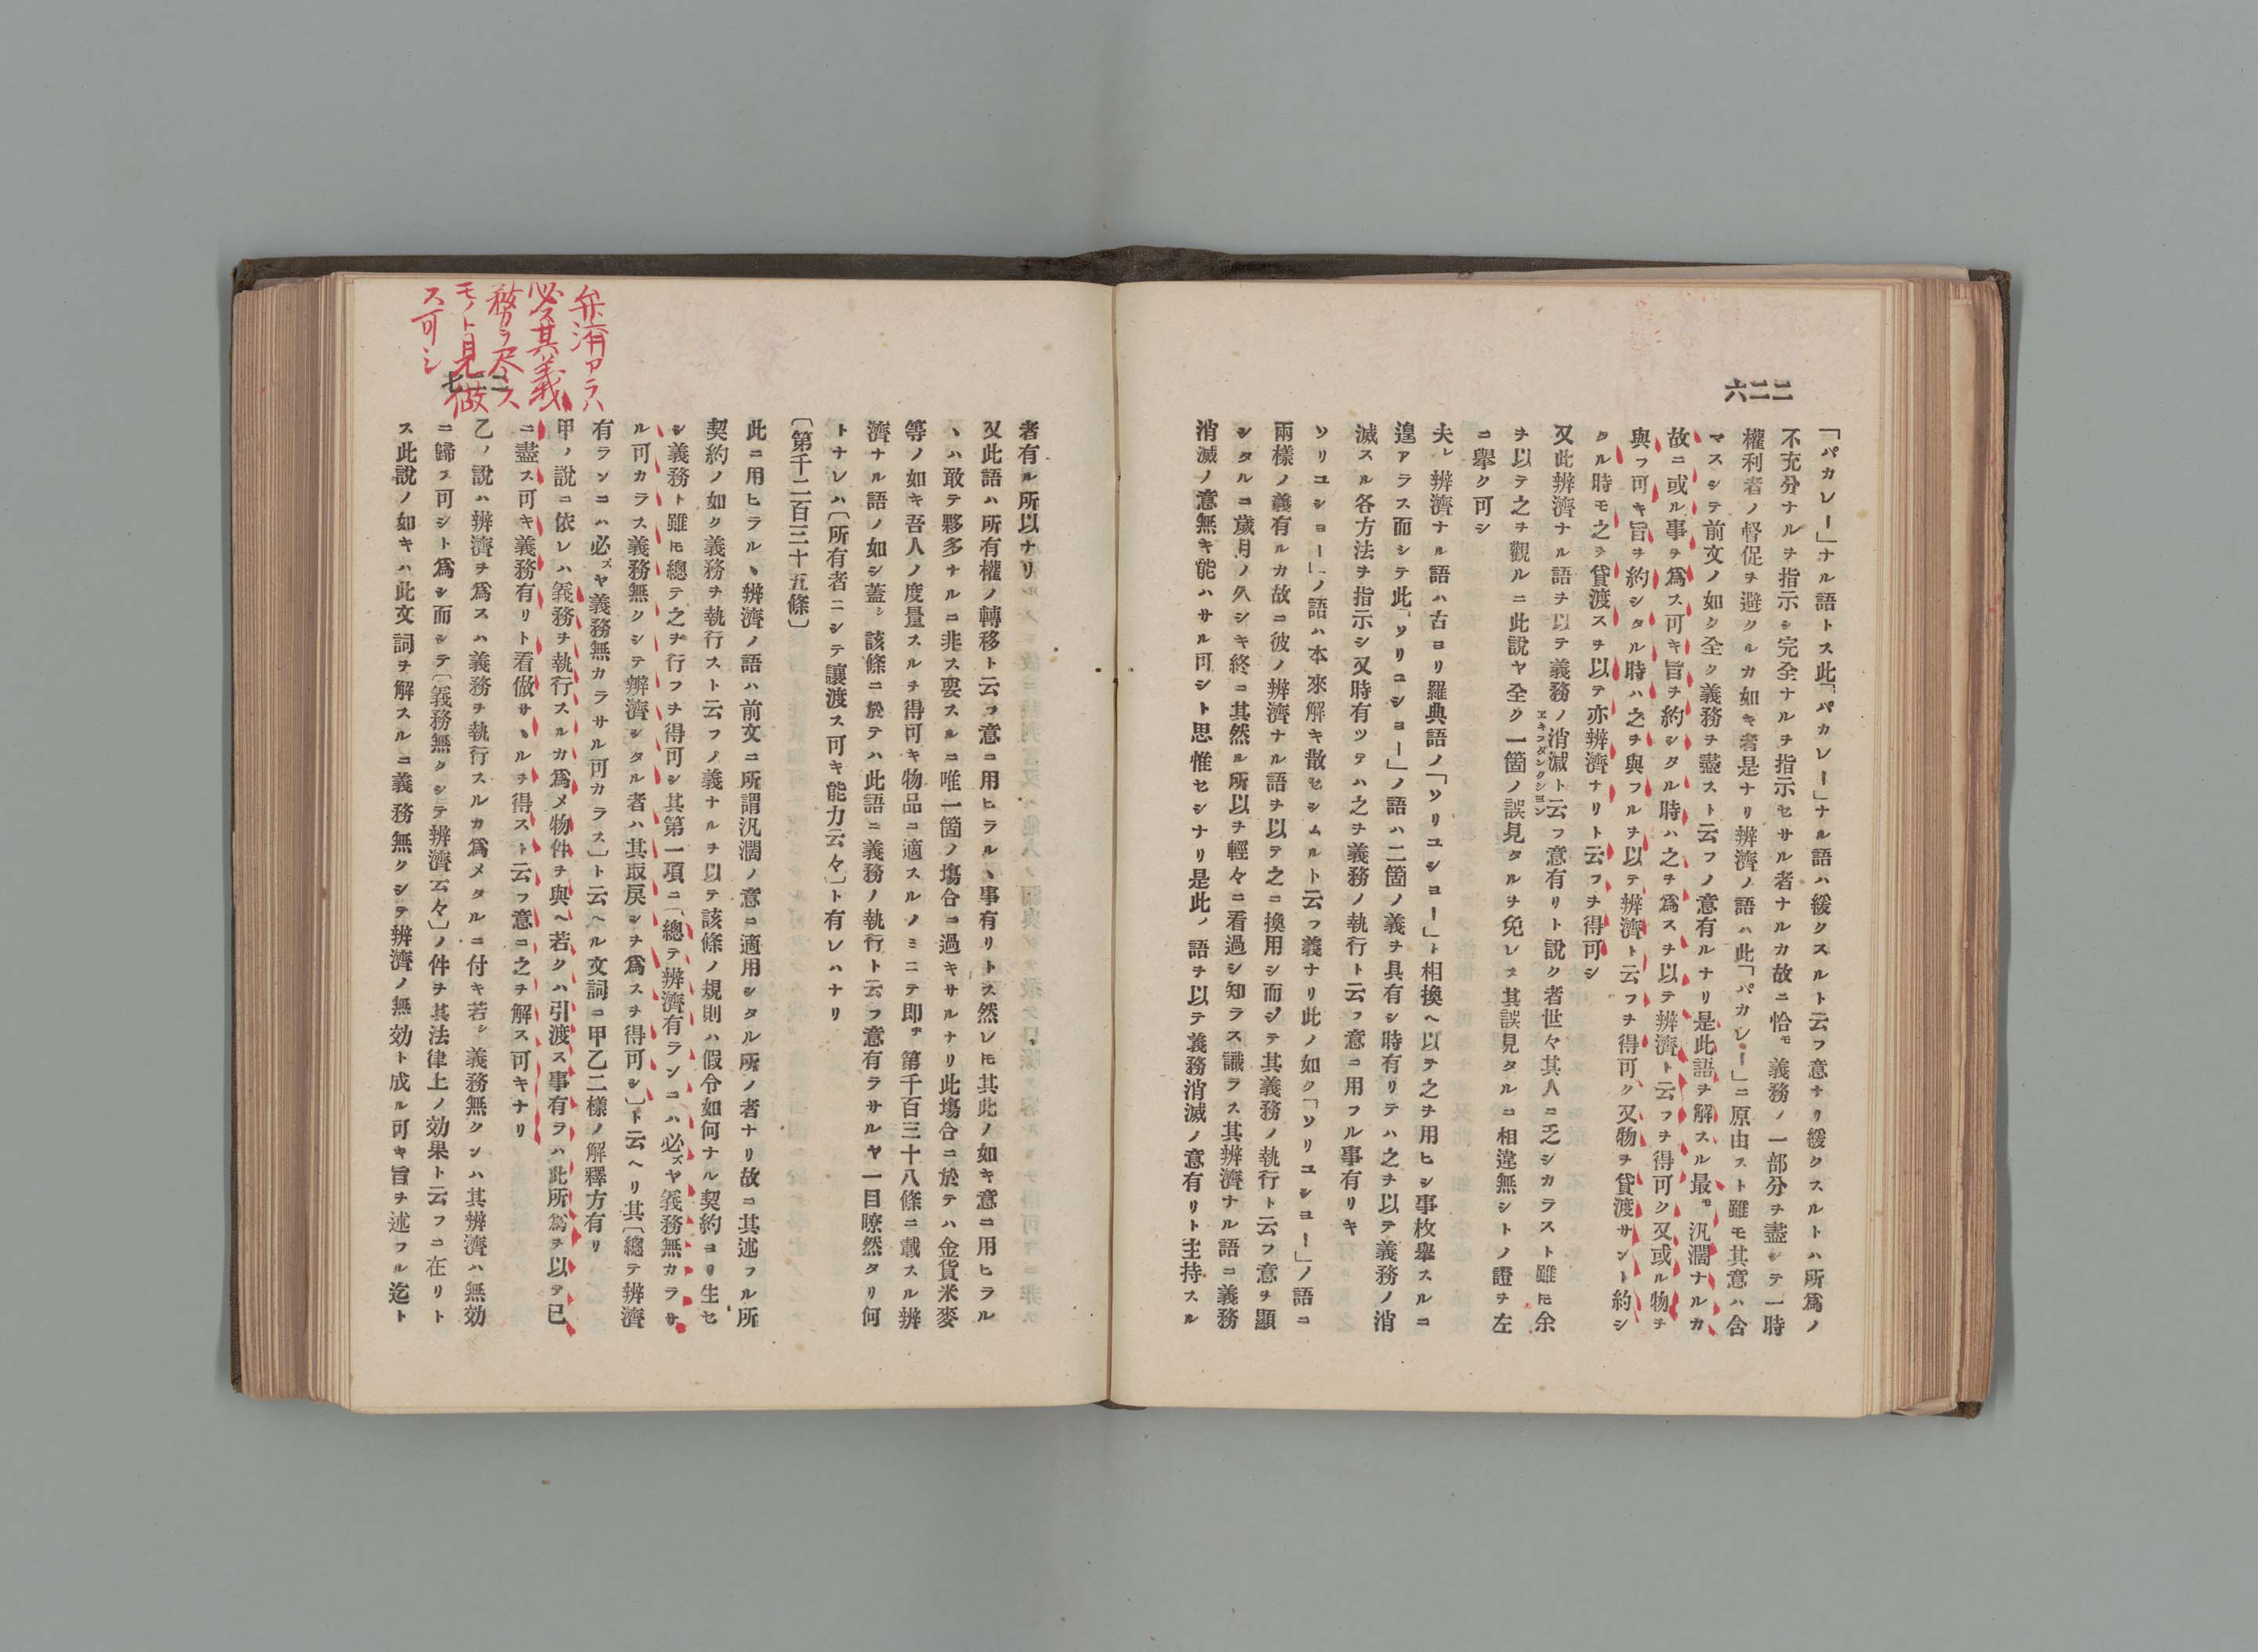 二二六
「パカレー」ナル語トス此「パカレー」ナル語ハ緩クスルト云フ意ナリ緩クスルトハ所爲ノ
不充分ナルヲ指示シ完全ナルヲ指示セサル者ナルカ故ニ恰モ義務ノ一部分ヲ盡シテ一時
權利者ノ督促ヲ避クルカ如キ者是ナリ辨濟ノ語ハ此「パカレー」ニ原由スト雖モ其意ハ含
マスシテ前文ノ如ク全ク義務ヲ盡スト云フノ意有ルナリ是此語ヲ解スル最モ汎濶ナルカ
故ニ或ル事ヲ爲ス可キ旨ヲ約シタル時ハ之ヲ爲スヲ以テ辨濟ト云フヲ得可ク又或ル物ヲ
與フ可キ旨ヲ約シタル時ハ之ヲ與フルヲ以テ辨濟ト云フヲ得可ク又物ヲ貸渡サント約シ
タル時モ之ヲ貸渡スヲ以テ亦辨濟ナリト云フヲ得可シ
又此辨濟ナル語ヲ以テ義務ノ消滅ト云フ意有リト說ク者世々其人ニ乏シカラスト雖𪜈余
ヲ以テ之ヲ觀ルニ此說ヤ全ク一箇ノ誤見タルヲ免レス其誤見タルコ相違無シトノ證ヲ左
ニ擧ク可シ
夫レ辨濟ナル語ハ古ヨリ羅典語ノ「ソリユシヨー」ト相換ヘ以テ之ヲ用ヒシ事枚擧スルニ
遑アラス而シテ此「ソリユシヨー」ノ語ハ二箇ノ義ヲ具有シ時有リテハ之ヲ以テ義務ノ消
滅スル各方法ヲ指示シ又時有ツテハ之ヲ義務ノ執行ト云フ意ニ用フル事有リキ
ソリユシヨー」ノ語ハ本來解キ散セシムルト云フ義ナリ此ノ如ク「ソリユシヨー」ノ語ニ
兩樣ノ義有ルカ故ニ彼ノ辨濟ナル語ヲ以テ之ニ換用シ而シテ其義務ノ執行ト云フ意ヲ顯
シタルコ歲月ノ久シキ終ニ其然ル所以ヲ輕々ニ看過シ知ラス識ラス其辨濟ナル語ニ義務
消滅ノ意無キ能ハサル可シト思惟セシナリ是此ノ語ヲ以テ義務消滅ノ意有リト主持スル
弁濟アラハ
必ス其義
務ヲ尽ス
モノト見做
ス可シ
二二七
者有ル所以ナリ
又此語ハ所有權ノ轉移ト云フ意ニ用ヒラルヽ事有リトス然レ𪜈其此ノ如キ意ニ用ヒラル
ヽハ敢テ夥多ナルニ非ス要スルニ唯一箇ノ塲合ニ過キサルナリ此塲合ニ於テハ金貨米麥
等ノ如キ吾人ノ度量スルヲ得可キ物品ニ適スルノミニテ即チ第千百三十八條ニ載スル辨
濟ナル語ノ如シ蓋シ該條ニ於テハ此語ニ義務ノ執行ト云フ意有ラサルヤ一目瞭然タリ何
トナレハ〔所有者ニシテ讓渡ス可キ能力云々〕ト有レハナリ
〔第千二百三十五條〕
此ニ用ヒラルヽ辨濟ノ語ハ前文ニ所謂汎濶ノ意ニ適用シタル所ノ者ナリ故ニ其述フル所
契約ノ如ク義務ヲ執行スト云フノ義ナルヲ以テ該條ノ規則ハ假令如何ナル契約ヨリ生セ
シ義務ト雖𪜈總テ之ヲ行フヲ得可シ其第一項ニ〔總テ辨濟有ランニハ必スヤ義務無カラサ
ル可カラス義務無クシテ辨濟シタル者ハ其取戾シヲ爲スヲ得可シ〕ト云ヘリ其〔總テ辨濟
有ランニハ必スヤ義務無カラサル可カラス〕ト云ヘル文詞ニ甲乙二樣ノ解釋方有リ
甲ノ說ニ依レハ義務ヲ執行スルカ爲メ物件ヲ與ヘ若クハ引渡ス事有ラハ此所爲ヲ以テ已
ニ盡ス可キ義務有リト看做サヽルヲ得スト云フ意ニ之ヲ解ス可キナリ
乙ノ說ハ辨濟ヲ爲スハ義務ヲ執行スルカ爲メタルニ付キ若シ義務無クンハ其辨濟ハ無効
ニ歸ス可シト爲シ而シテ〔義務無クシテ辨濟云々〕ノ件ヲ其法律上ノ効果ト云フニ在リト
ス此說ノ如キハ此文詞ヲ解スルニ義務無クシテ辨濟ノ無効ト成ル可キ旨ヲ述フル迄ト